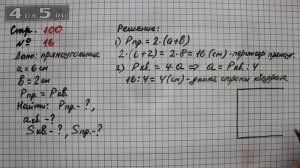 4DA5.RU
Стр. 100
№ 16
Дано: прямоугольник
a = 6 см
b = 2 см
Pпр. = Pкв.
Найти: Pпр. - ?,
aкв. - ?
Sкв. - ?, Sпр. - ?
Решение:
1) Pпр = 2·(a+b)
2·(6+2) = 2·8 = 16 (см) - периметр прямоуг.
2) Pкв. = 4·a ⇒ a = Pкв. : 4
16 : 4 = 4 (см) - длина стороны квадрата